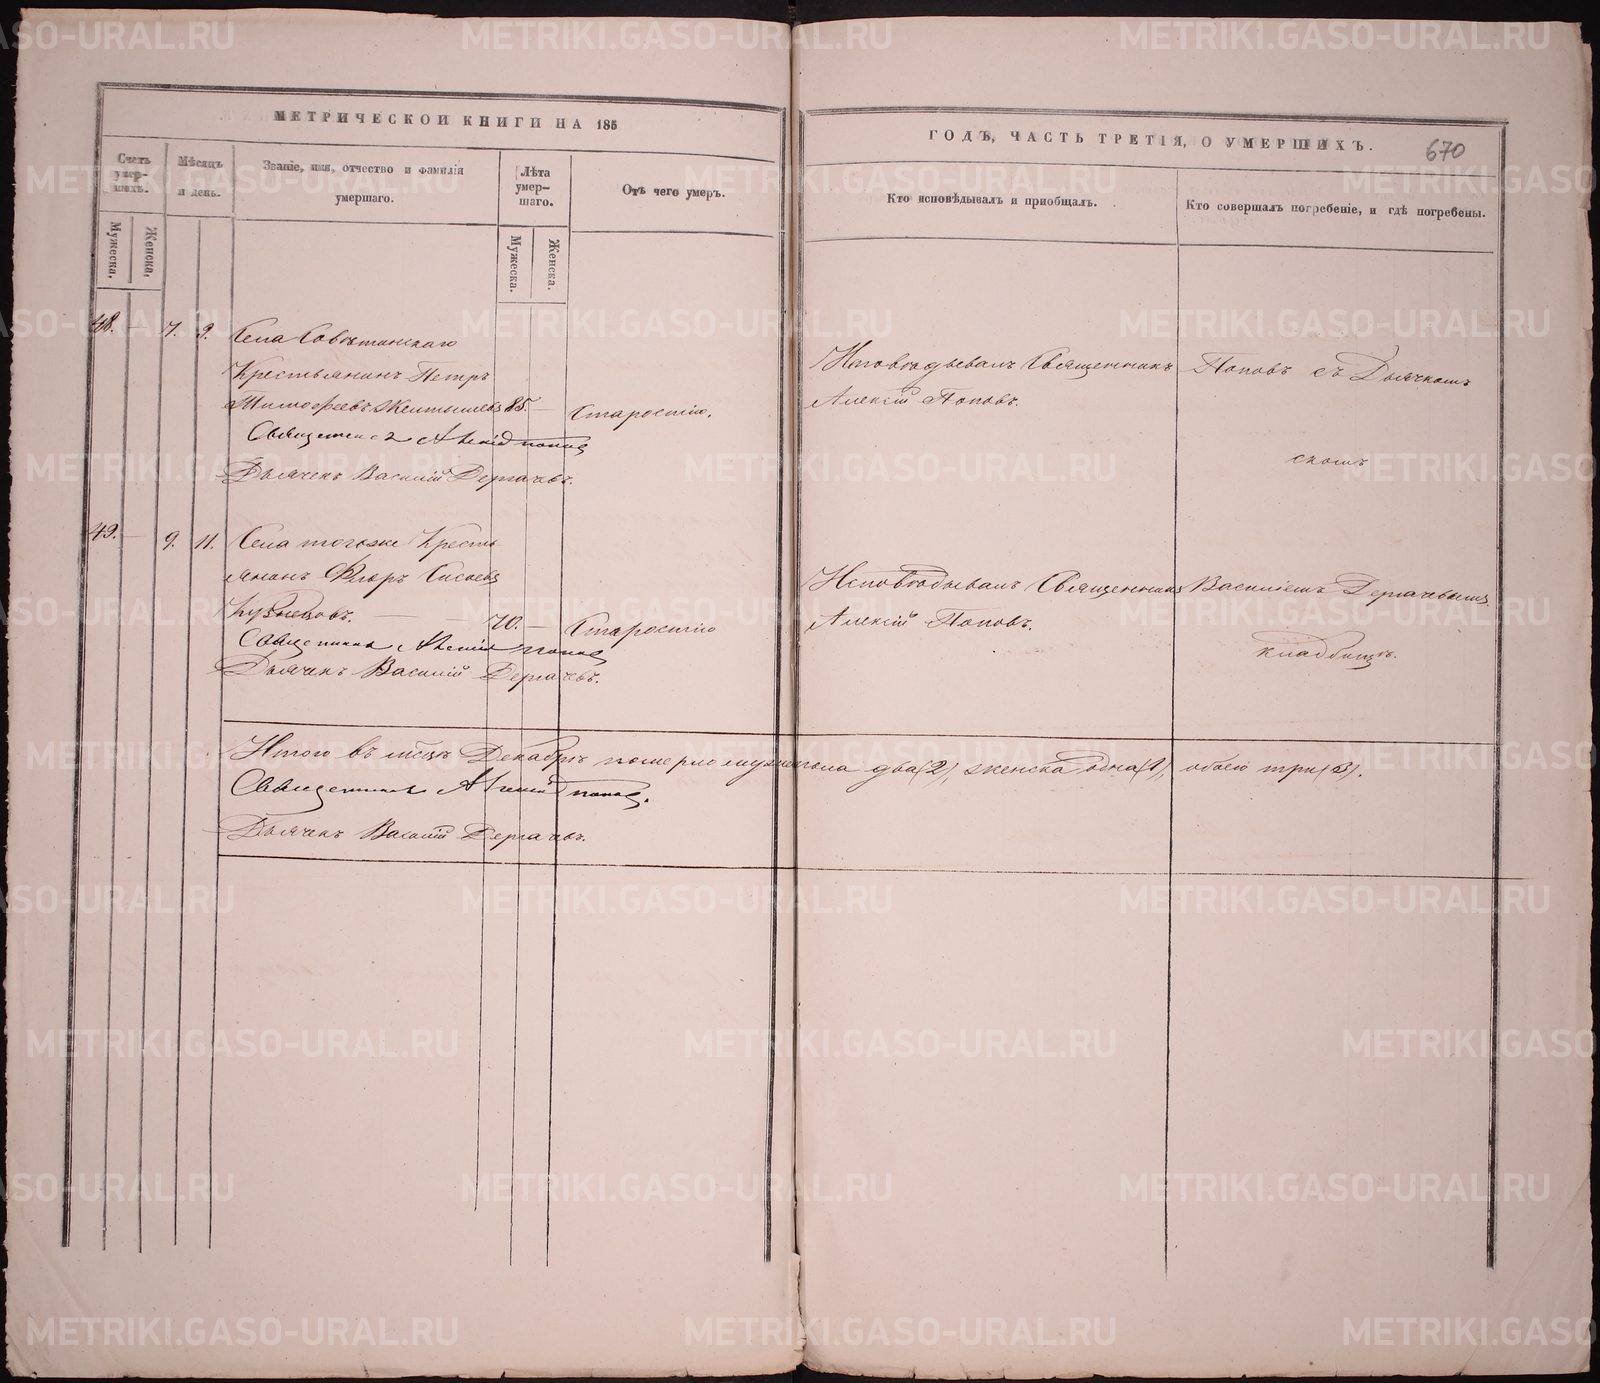 МЕТРИЧЕСКОЙ КНИГИ НА 185
ГОДЪ, ЧАСТЬ ТРЕТІЯ, О УМЕРШИХЪ.
670
Счетъ умер-шихъ.
Мужеска.
Женска.
Мѣсяцъ и день.
Званіе, имя, отчество и фамилія умершаго.
Лѣта умер-шаго.
Мужеска.
Женска.
Отъ чего умеръ.
Кто исповѣдывалъ и пріобщалъ.
Кто совершалъ погребеніе, и гдѣ погребены.
48. — 7. 9. Села
Крестьянинъ Петръ
Тимофеевъ 85. — Старостію.
Исповѣдывалъ Священникъ
Алексій Поповъ.
Поповъ съ Дьячкомъ
Священникъ Алексій Поповъ
Дьячекъ Василій Дергачевъ.
скомъ
49. — 9. 11. Села тогоже Кресть
янинъ Флоръ Сисоевъ
Кузнецовъ. — 70. — Старостію
Исповѣдывалъ Священникъ
Алексій Поповъ.
Василіемъ Дергачевымъ
кладбищѣ.
Священникъ Алексій Поповъ
Дьячекъ Василій Дергачевъ.
Итого въ мѣсцѣ Декабрѣ померло мужеска два (2), женска одна (1), обоего три (3).
Священникъ Алексій Поповъ.
Дьячекъ Василій Дергачевъ.
METRIKI.GASO-URAL.RU